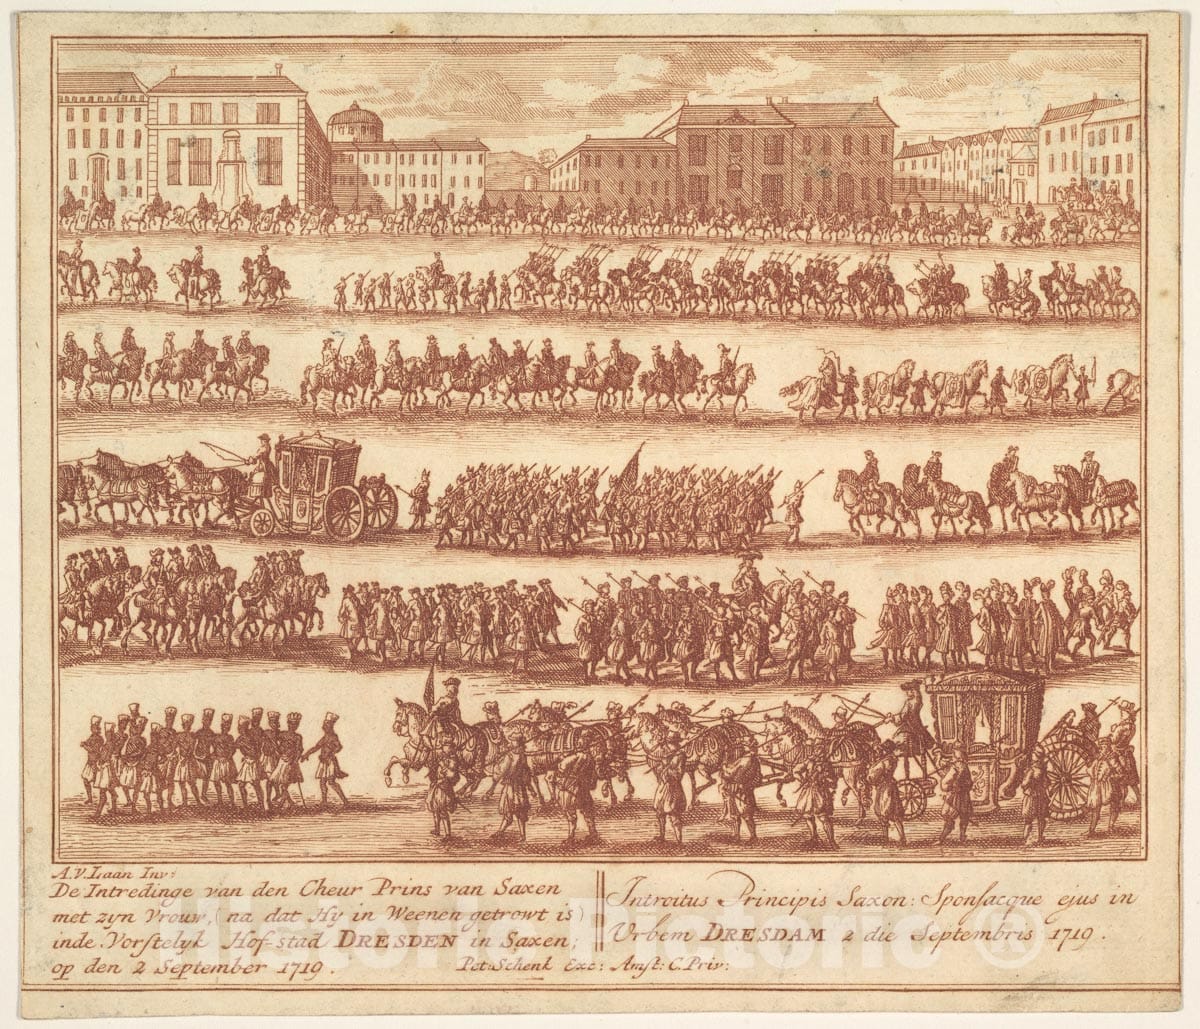 A. V. Laan Inv:
De Intredinge van den Cheur Prins van Saxen
met zyn Vrouw, (na dat Hy in Weenen getrowt is)
inde Vorstelyk Hof-stad DRESDEN in Saxen;
op den 2 September 1719.
Introitus Principis Saxon: Sponsacque ejus in
Urbem DRESDAM 2 die Septembris 1719.
Pet: Schenk Exc: Amst: C. Priv:
Historic Pictoric ®